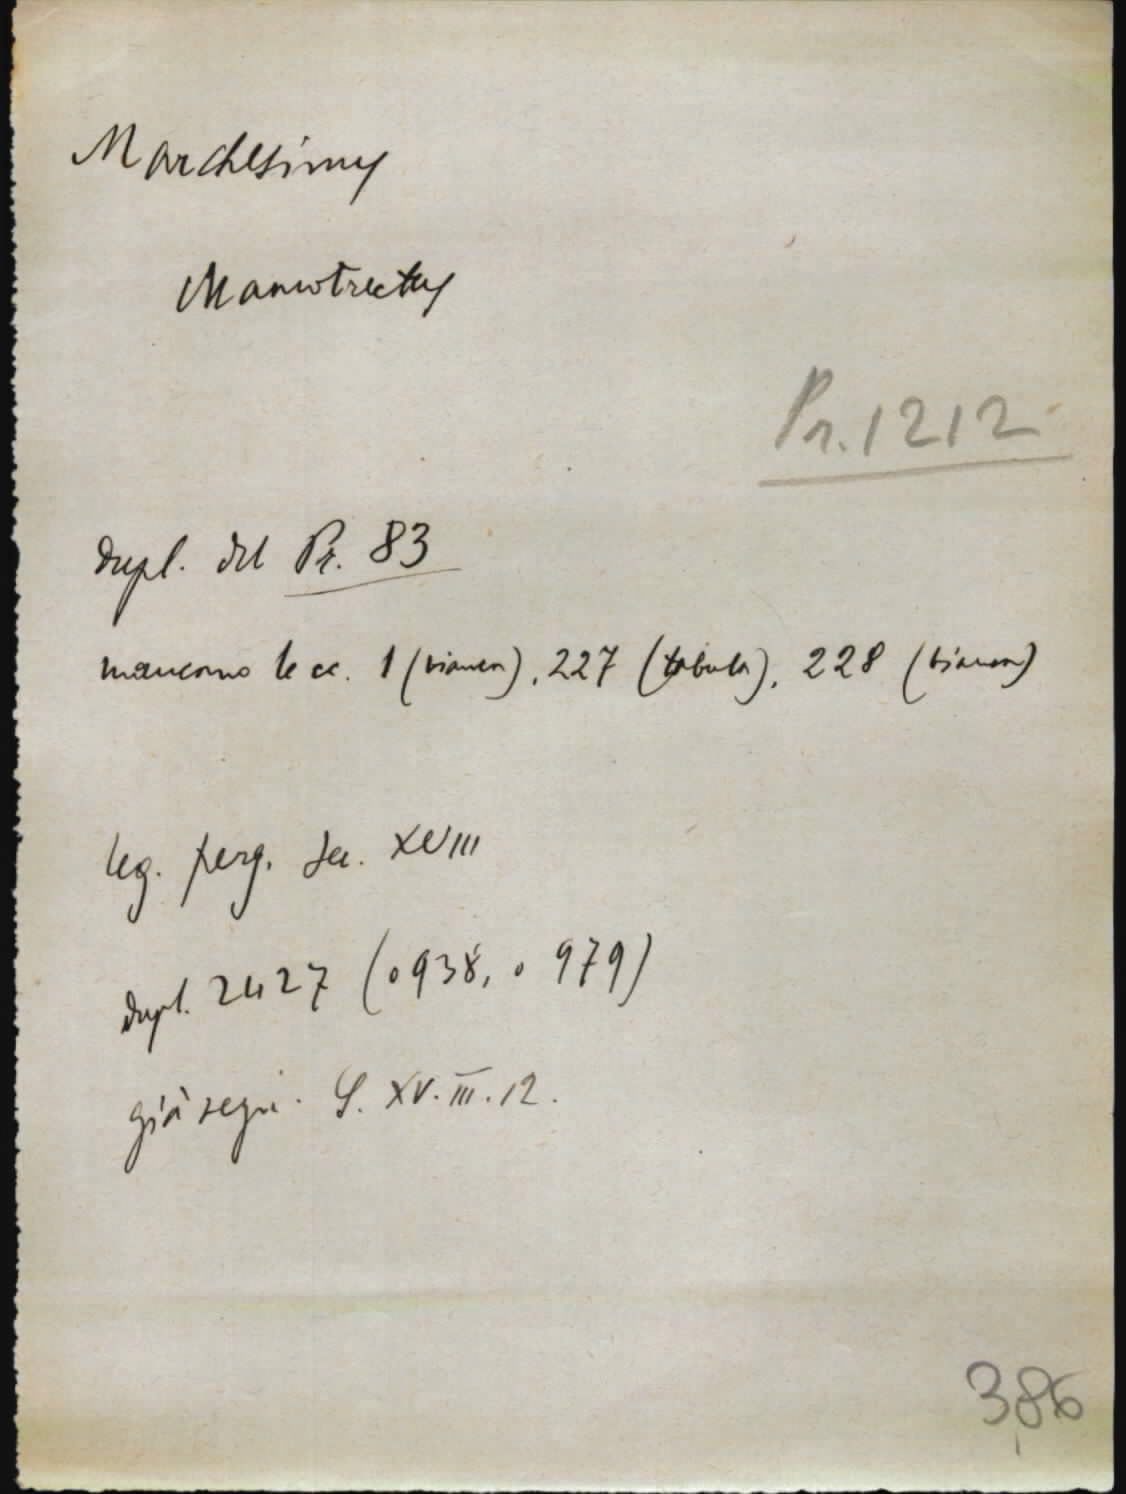 Marchesinus
Mamotrectus
Pr. 1212
dupl. del Pr. 83
mancano le cc. 1 (bianca), 227 (tabula), 228 (bianca)
leg. perg. sec. XVIII
dupl. 2427 (0938, 0979)
già segn. S. XV. III. 12.
386